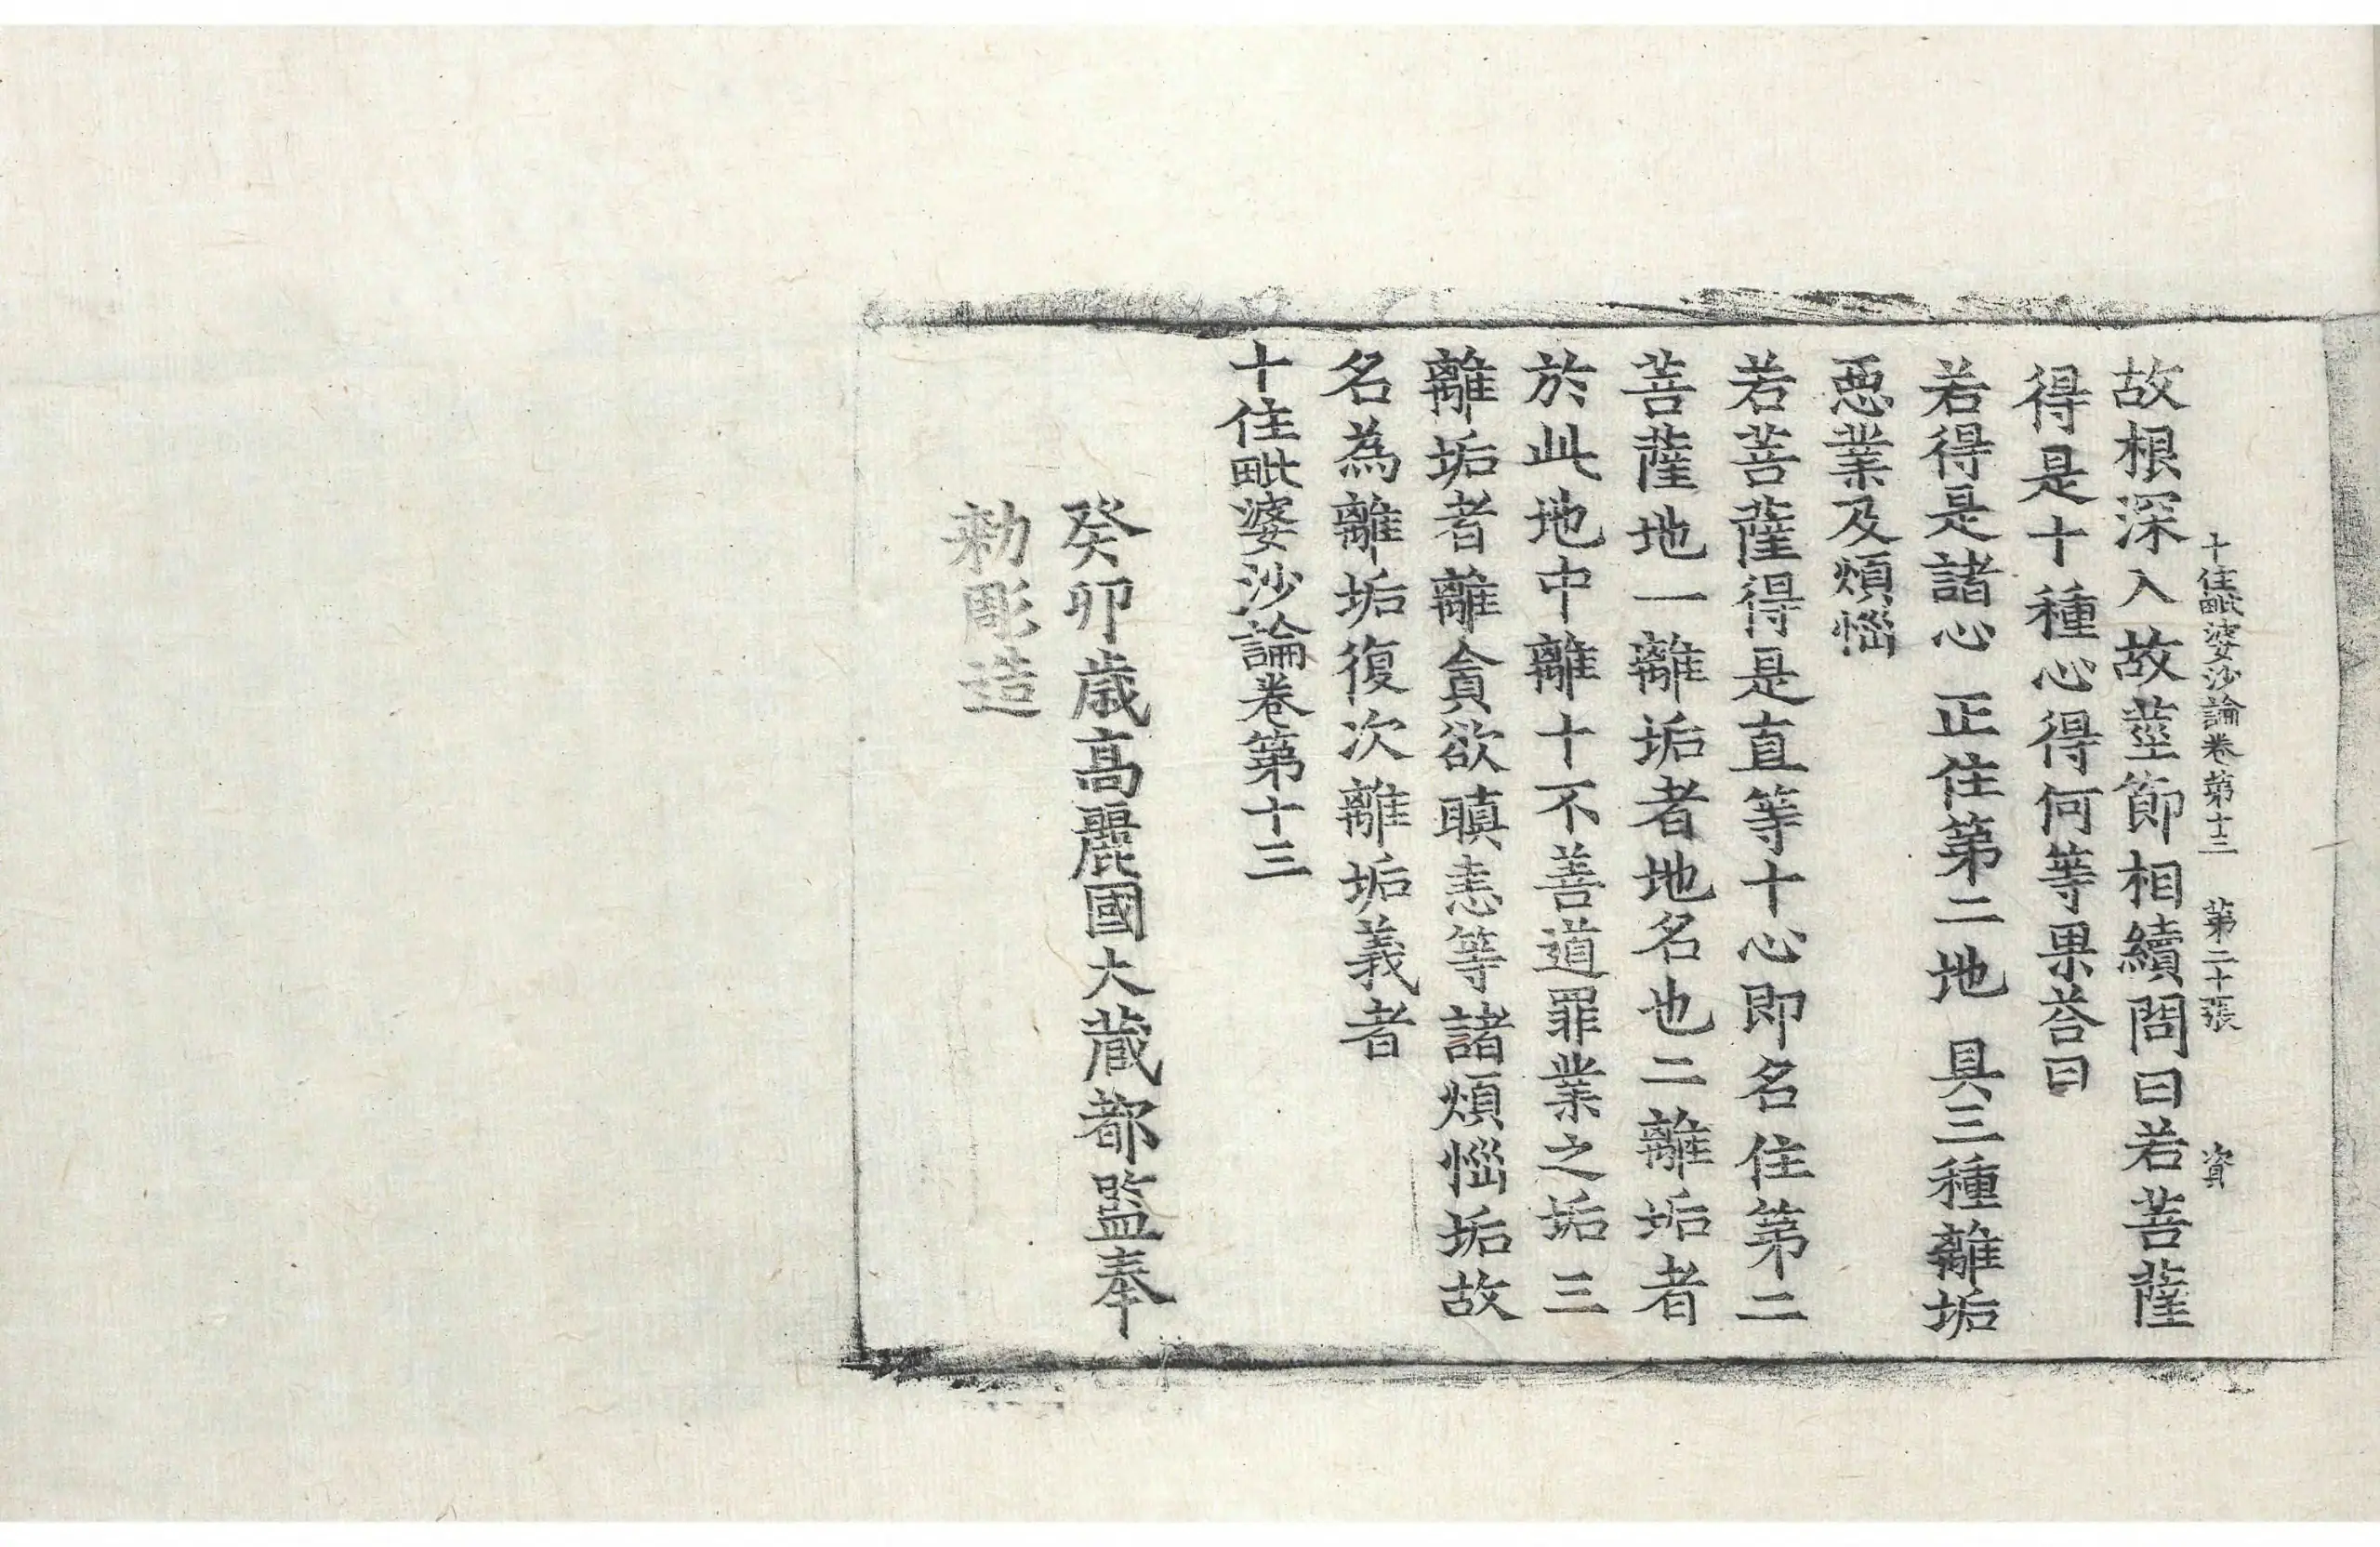 十住毗婆沙論卷第十三 第二十張 資
故根深入故莖節相續問曰若菩薩
得是十種心得何等果荅曰
若得是諸心 正住第二地 具三種離垢
惡業及煩惱
若菩薩得是直等十心即名住第二
菩薩地一離垢者地名也二離垢者
於此地中離十不善道罪業之垢三
離垢者離貪欲瞋恚等諸煩惱垢故
名為離垢復次離垢義者
十住毗婆沙論卷第十三
癸卯歲高麗國大藏都監奉
勅彫造